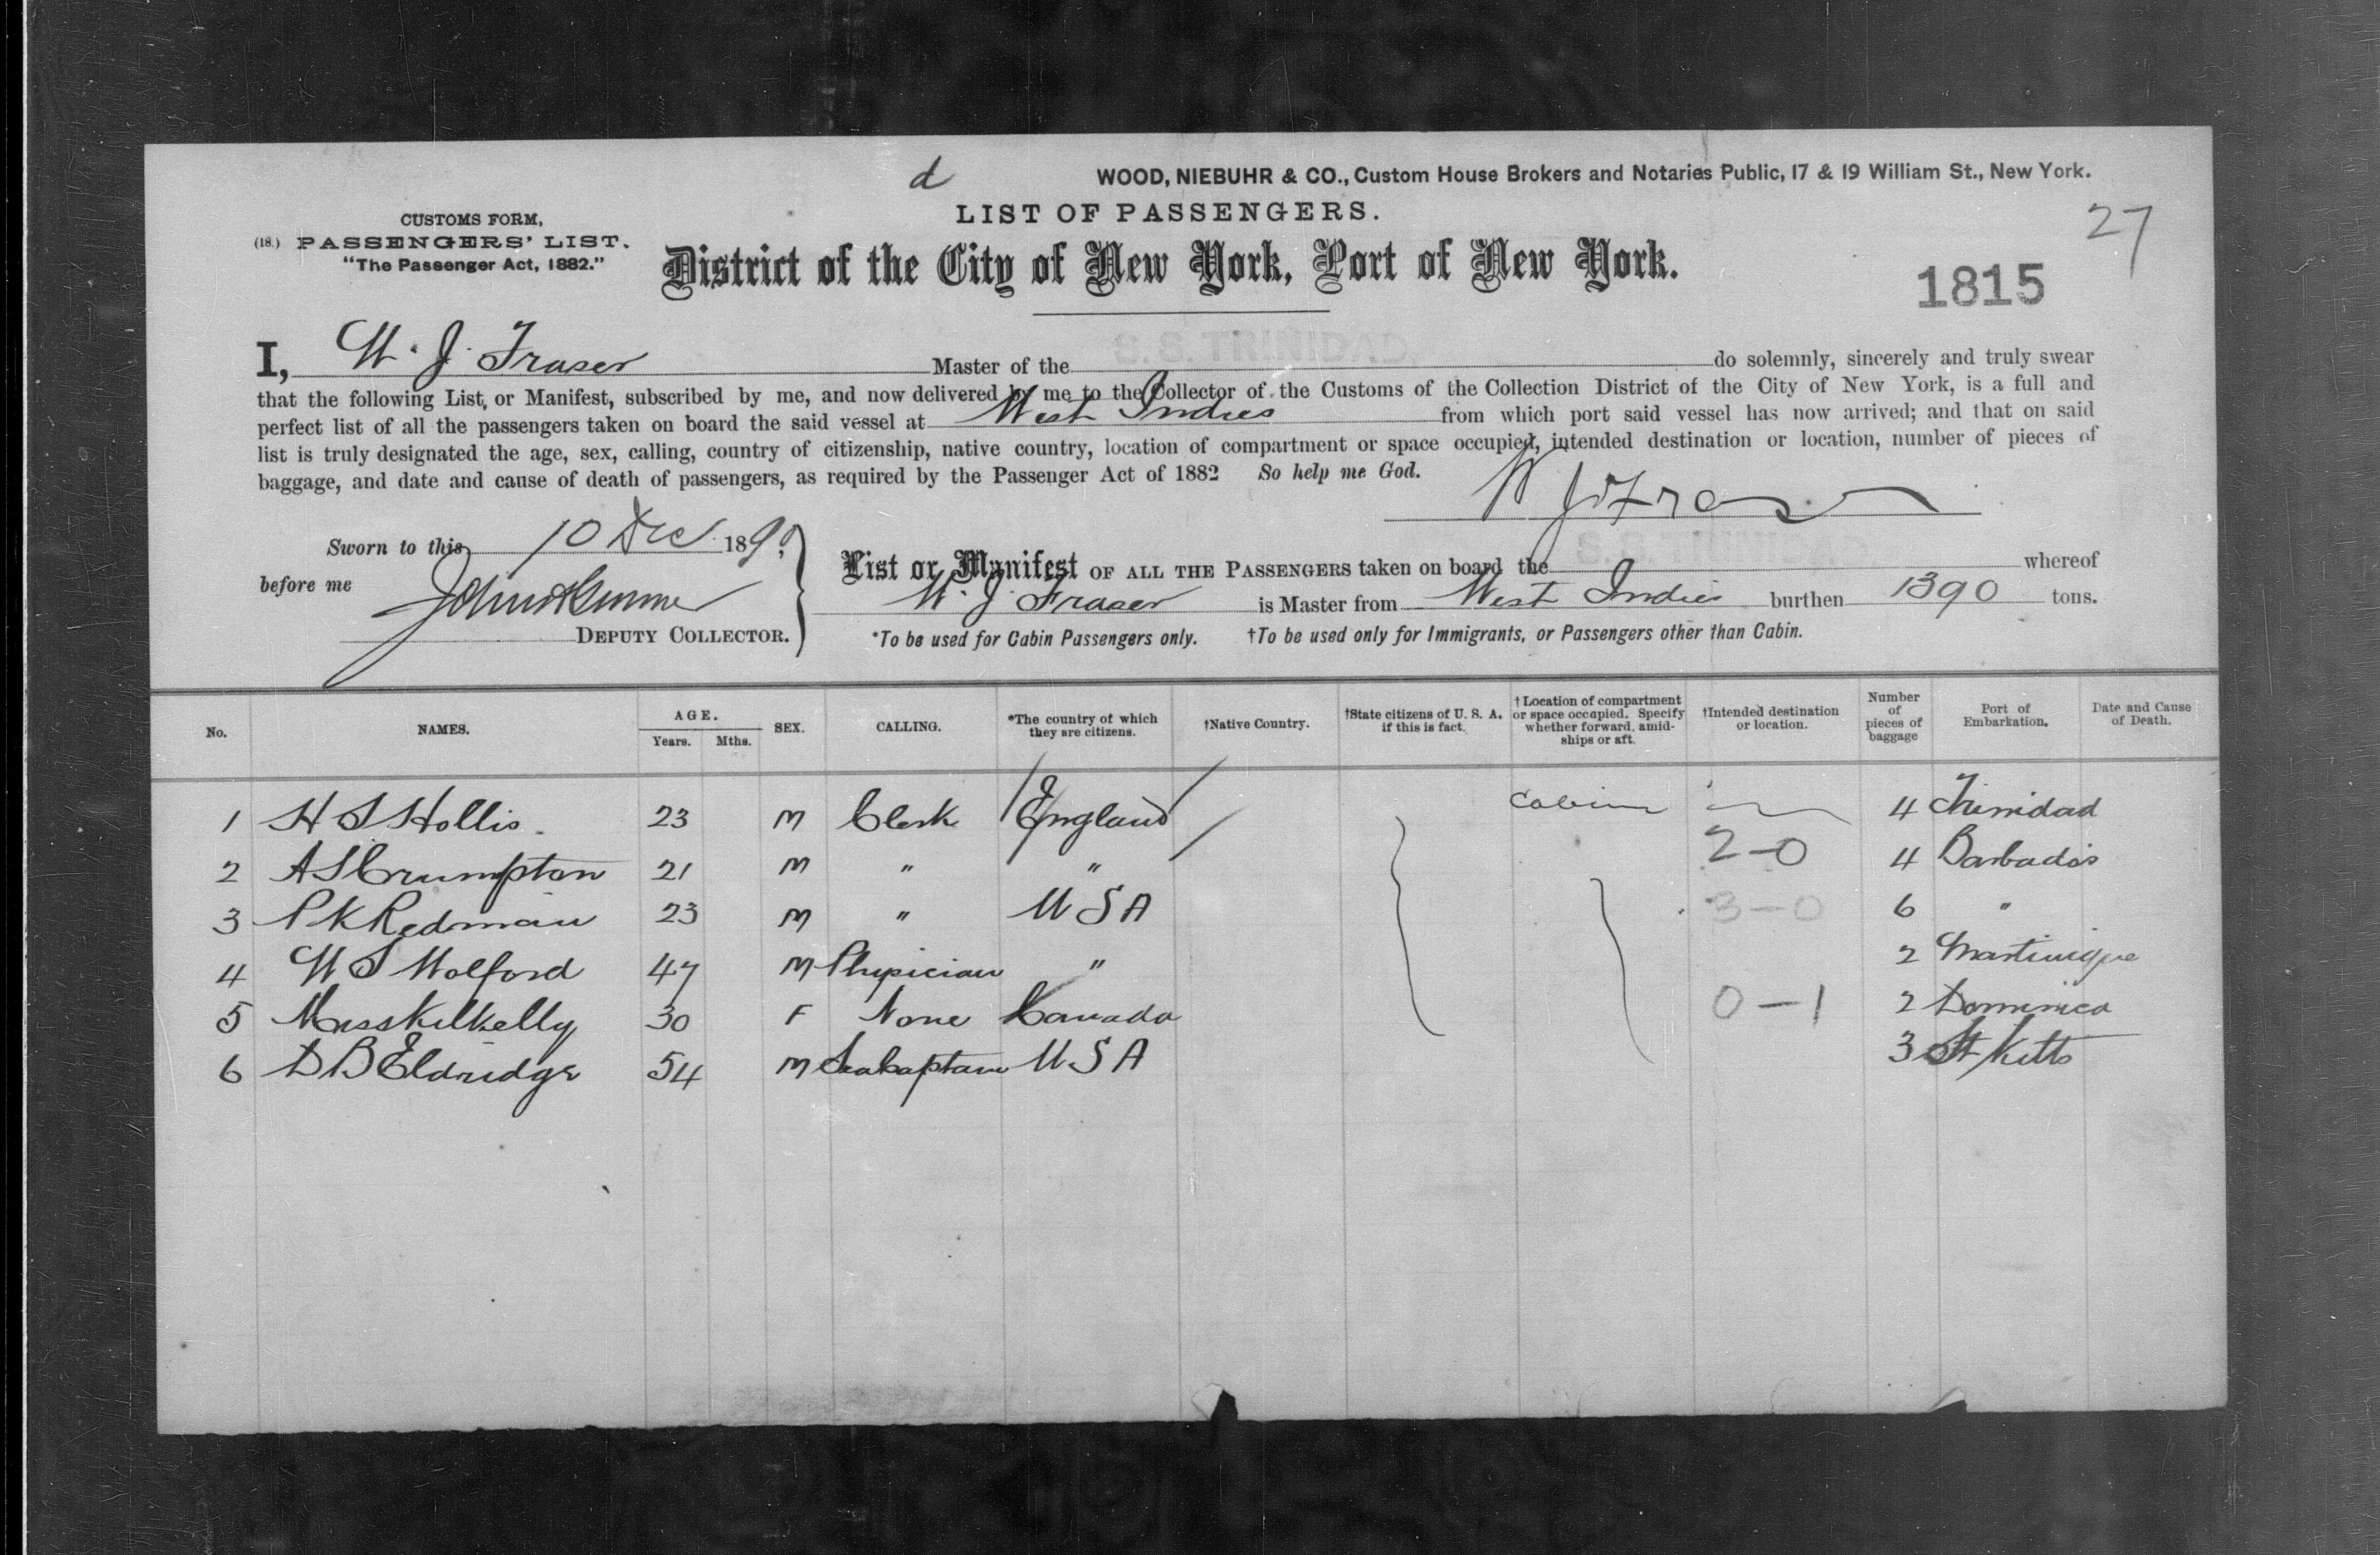 d
WOOD, NIEBUHR & CO., Custom House Brokers and Notaries Public, 17 & 19 William St., New York.
LIST OF PASSENGERS.
27
CUSTOMS FORM,
(18.) PASSENGERS' LIST.
"The Passenger Act, 1882."
District of the City of New York, Port of New York.
1815
I, W. J. Fraser Master of the S. S. TRINIDAD, do solemnly, sincerely and truly swear
that the following List, or Manifest, subscribed by me, and now delivered by me to the Collector of the Customs of the Collection District of the City of New York, is a full and
perfect list of all the passengers taken on board the said vessel at West Indies from which port said vessel has now arrived; and that on said
list is truly designated the age, sex, calling, country of citizenship, native country, location of compartment or space occupied, intended destination or location, number of pieces of
baggage, and date and cause of death of passengers, as required by the Passenger Act of 1882 So help me God.
W J Fraser
Sworn to this 10 Dec 189
before me
DEPUTY COLLECTOR.
List or Manifest OF ALL THE PASSENGERS taken on board the S.S. TRINIDAD whereof
W. J. Fraser is Master from West Indies burthen 1390 tons.
*To be used for Cabin Passengers only. †To be used only for Immigrants, or Passengers other than Cabin.
No. NAMES. AGE. Years. Mths. SEX. CALLING. *The country of which they are citizens. †Native Country. †State citizens of U. S. A. if this is fact. †Location of compartment or space occupied. Specify whether forward, amidships or aft. †Intended destination or location. Number of pieces of baggage Port of Embarkation. Date and Cause of Death.
1 H S Hollis 23 M Clerk England Cabin 4 Trinidad
2 A S Crumpton 21 M " " 2-0 4 Barbados
3 P K Redman 23 M " U S A 3-0 6 "
4 W S Wolford 47 M Physician " 2 Martinique
5 Miss Kilkelly 30 F None Canada 0-1 2 Dominica
6 D B Eldridge 54 M Seacaptain U S A 3 St Kitts